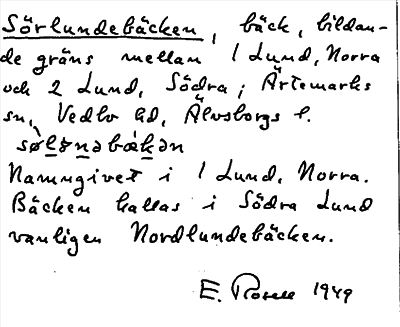 Sörlundebäcken, bäck, bildan-
de gräns mellan 1 Lund, Norra
och 2 Lund, Södra; Ärtemarks
sn, Vedbo hd, Älvsborgs l.
Namngivet i 1 Lund, Norra.
Bäcken kallas i Södra Lund
vanligen Nordlundebäcken.
E. Rosell 1949